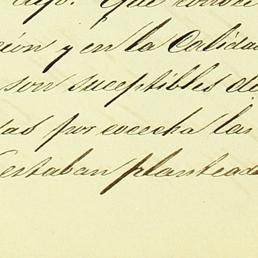 dejo. Que conoce
ción y en la Calidad
son suceptibles de
das por cocecha las
estaban planteada